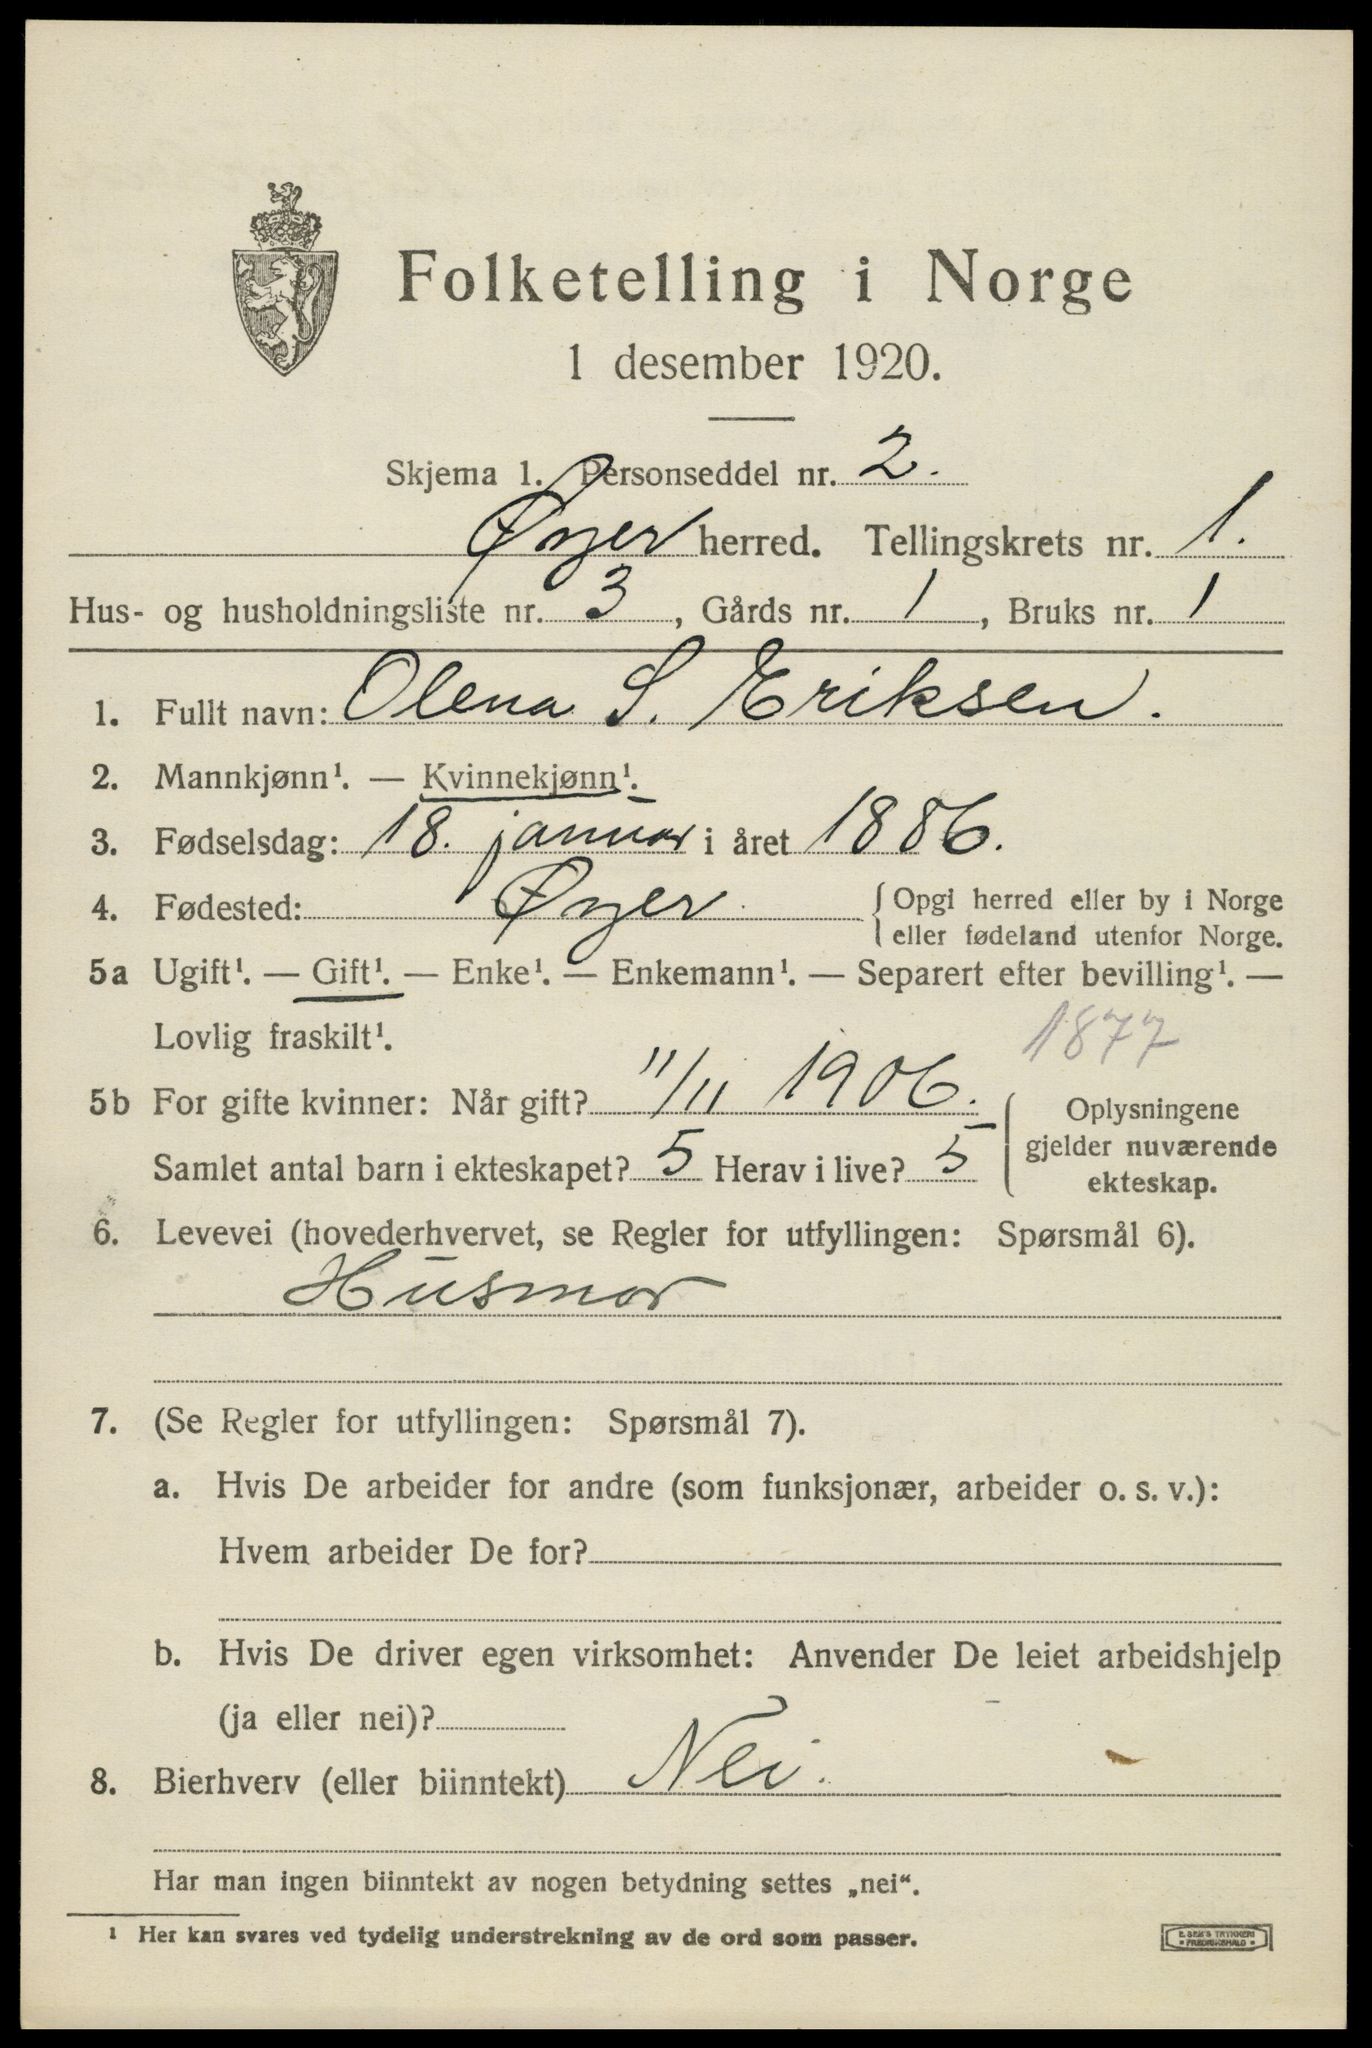 Folketelling i Norge
1 desember 1920.
Skjema 1. Personseddel nr. 2.
Øyer herred. Tellingskrets nr. 1.
Hus- og husholdningsliste nr. 3, Gårds nr. 1, Bruks nr. 1
1. Fullt navn: Olena S. Eriksen.
2. Mannkjønn¹. — Kvinnekjønn¹.
3. Fødselsdag: 18. januar i året 1886.
4. Fødested: Øyer. { Opgi herred eller by i Norge
eller fødeland utenfor Norge.
5a Ugift¹. — Gift¹. — Enke¹. — Enkemann¹. — Separert efter bevilling¹. —
Lovlig fraskilt¹.
1877
5b For gifte kvinner: Når gift? 11/11 1906.
Samlet antal barn i ekteskapet? 5 Herav i live? 5
{ Oplysningene
gjelder nuværende
ekteskap.
6. Levevei (hovederhvervet, se Regler for utfyllingen: Spørsmål 6).
Husmor
7. (Se Regler for utfyllingen: Spørsmål 7).
a. Hvis De arbeider for andre (som funksjonær, arbeider o. s. v.):
Hvem arbeider De for?
b. Hvis De driver egen virksomhet: Anvender De leiet arbeidshjelp
(ja eller nei)?
8. Bierhverv (eller biinntekt) Nei.
Har man ingen biinntekt av nogen betydning settes „nei“.
¹ Her kan svares ved tydelig understrekning av de ord som passer.
E. SEM'S TRYKKERI
• FREDRIKSHALD •